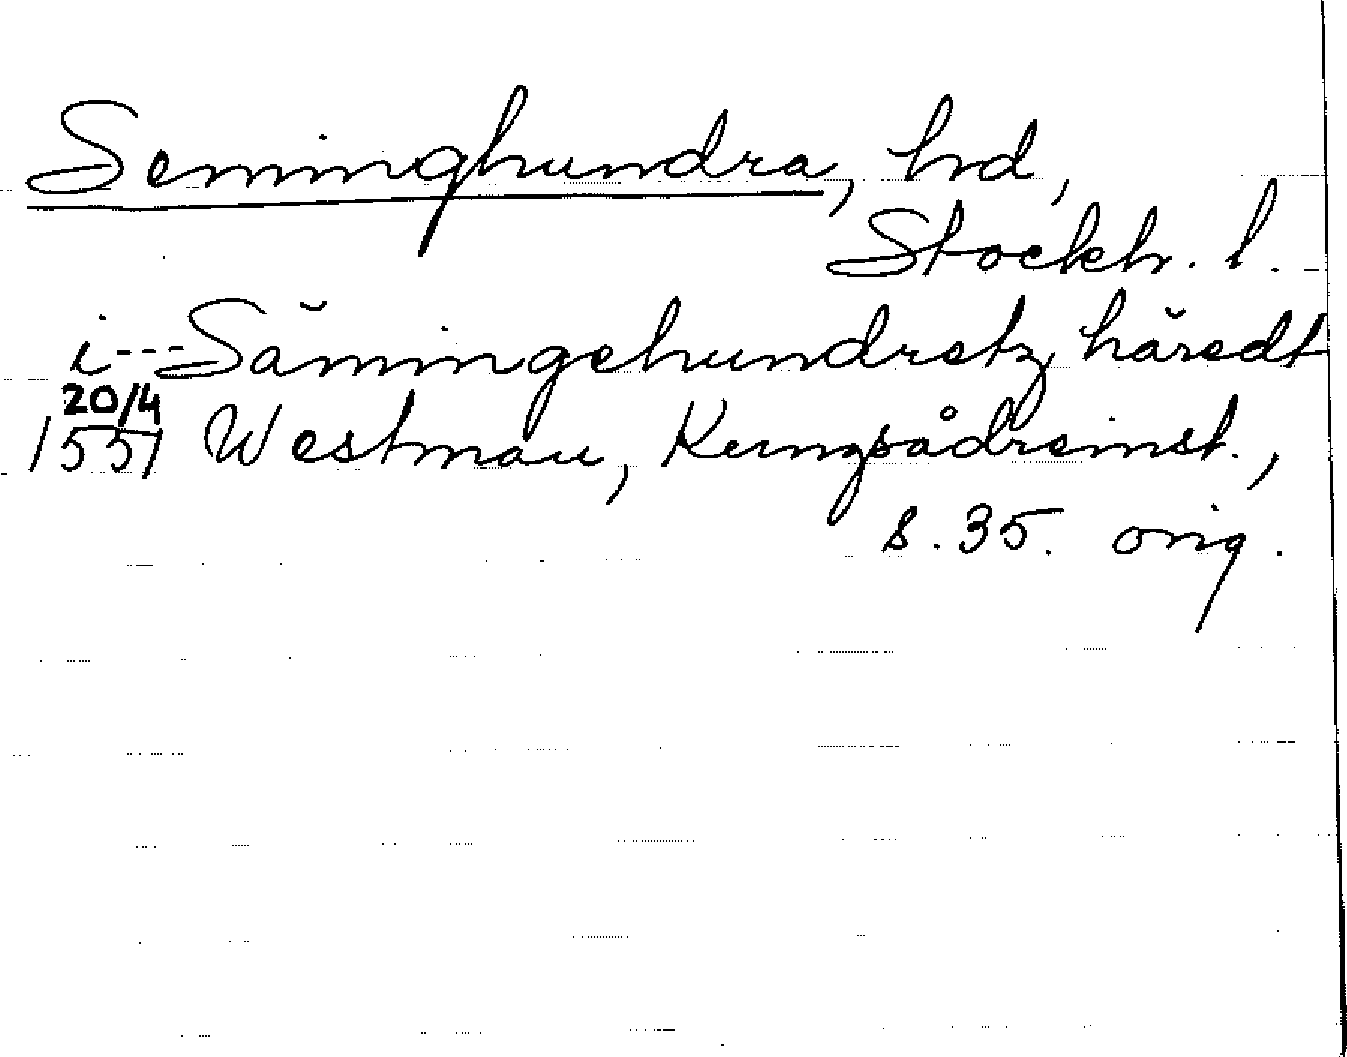 Seminghundra, hrd,
Stockh. l.
i---Sämingehundretz häredt
20/4
1551 Westman, Kungsådreinst.,
s. 35. orig.